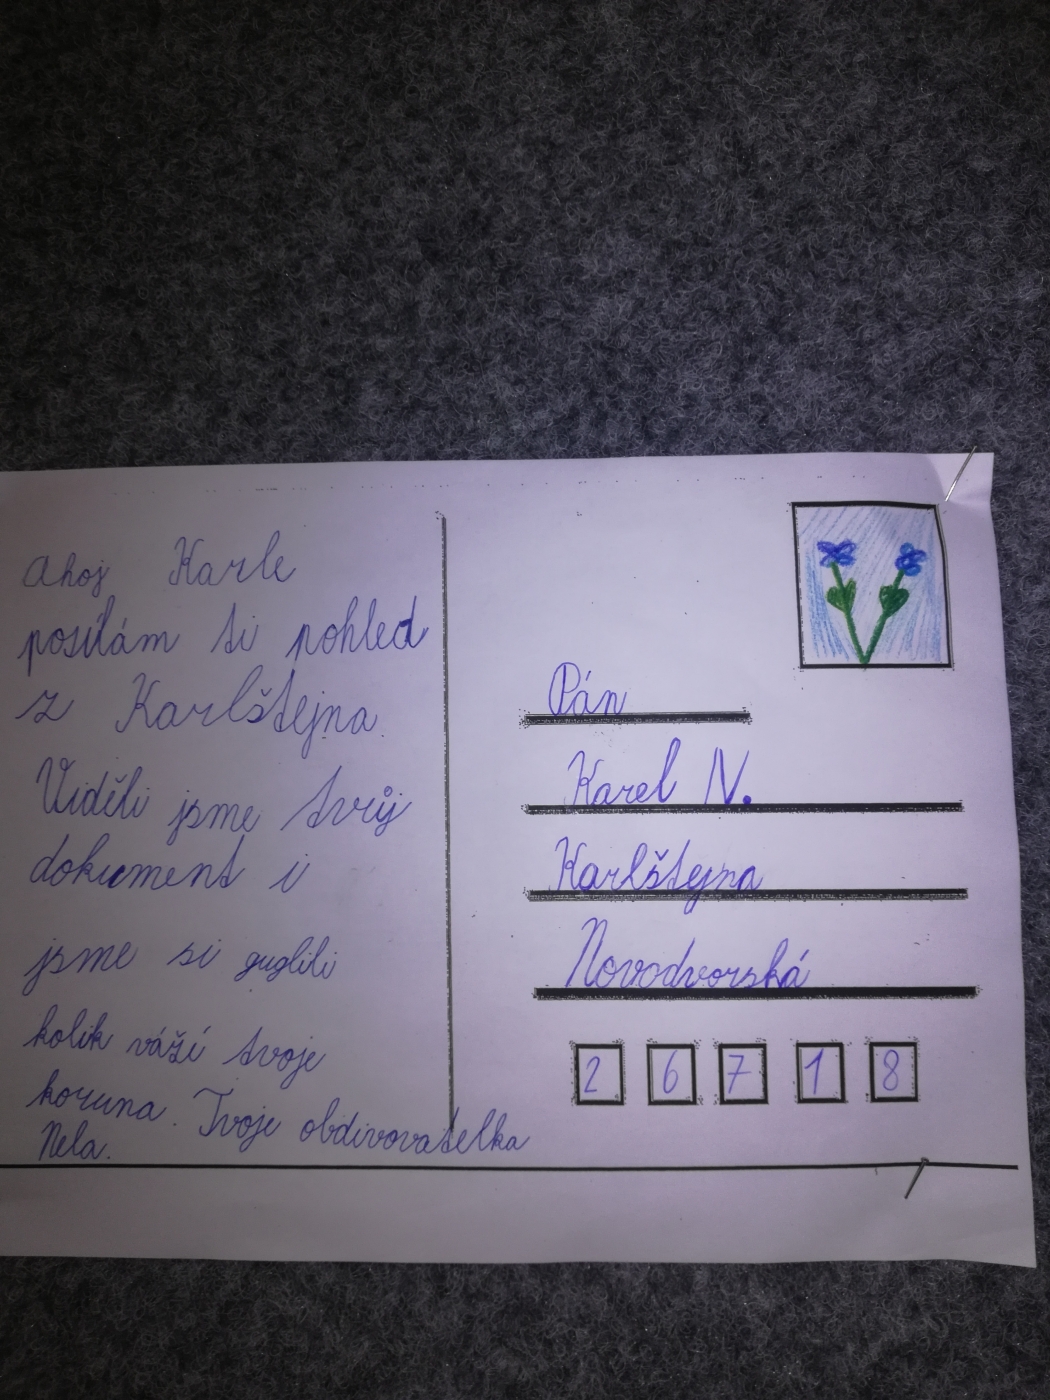 ahoj Karle
posílám ti pohled
z Karlštejna.
Viděli jsme tvůj
dokument i
jsme si guglili
kolik váží tvoje
koruna. Tvoje obdivovatelka
Nela.
Pán
Karel IV.
Karlštejna
Novodvorská
2 6 7 1 8